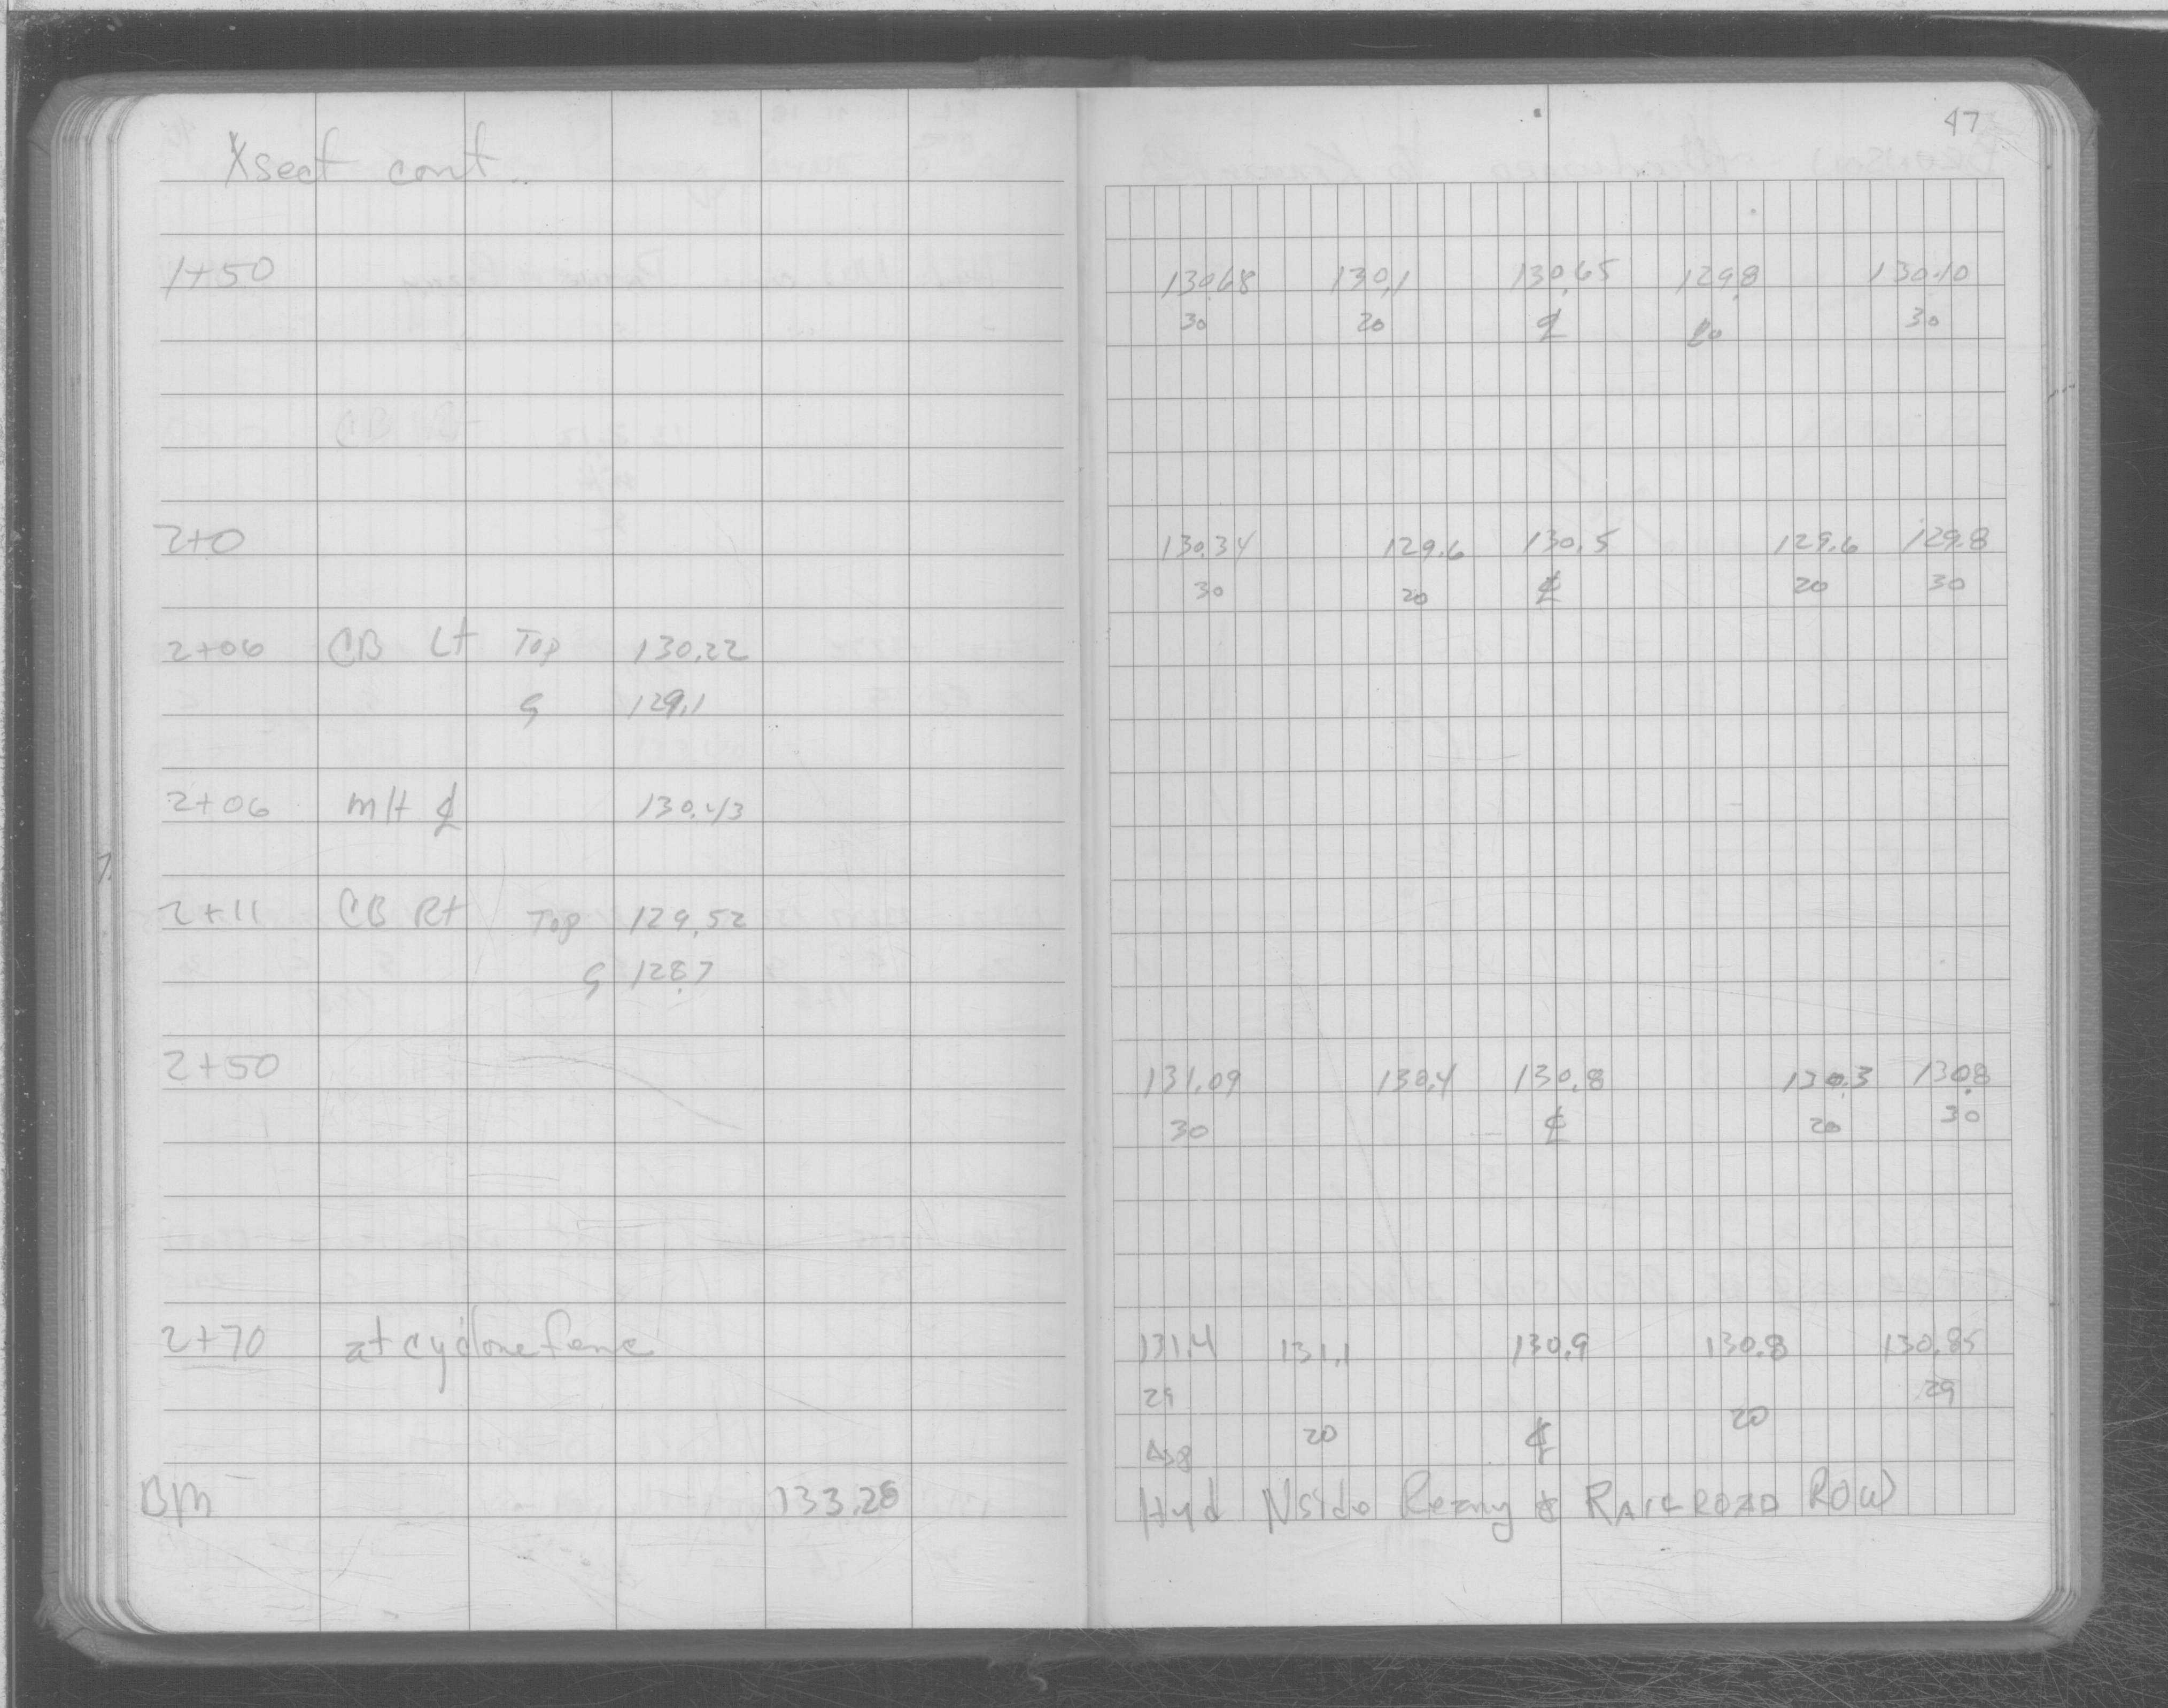 47
Xsect cont.
1+50 130.68 130.1 130.65 129.8 130.10
30 20 ℄ 20 30
CB Rt
2+0 130.34 129.6 130.5 129.6 129.8
30 20 ℄ 20 30
2+06 CB Lt Top 130.22
G 129.1
2+06 MH ℄ 130.43
2+11 CB Rt Top 129.52
G 128.7
2+50 131.09 130.4 130.8 130.3 130.8
30 ℄ 20 30
2+70 at cyclone fence 131.4 131.1 130.9 130.8 130.85
29 20 ℄ 20 29
BM 133.28 Hyd N side & RAILROAD ROW